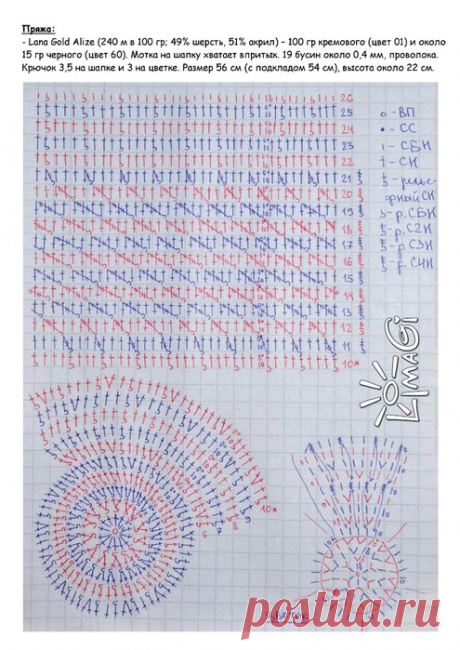 Пряжа:
- Lana Gold Alize (240 м в 100 гр; 49% шерсть, 51% акрил) – 100 гр кремового (цвет 01) и около
15 гр черного (цвет 60). Мотка на шапку хватает впритык. 19 бусин около 0,4 мм, проволока.
Крючок 3,5 на шапке и 3 на цветке. Размер 56 см (с подкладом 54 см), высота около 22 см.
26
25
24
23
22
21
20
19
18
17
16
15
14
13
12
11
10*
- ВП
- СС
- СБН
- СН
- рельефный СН
- р. СБН
- р. С2Н
- р. С3Н
- р. С4Н
LimaGi
10*
9
8
7
6
postila.ru